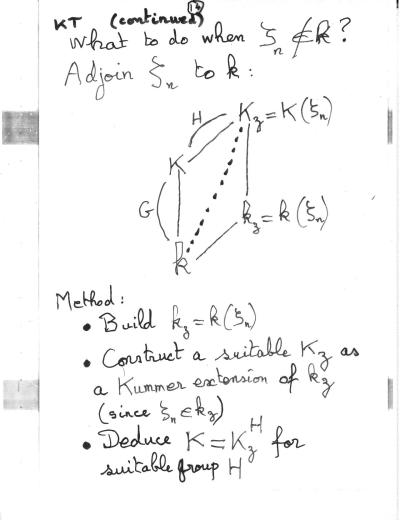 14
KT (continued)
What to do when ζ_n ∉ k?
Adjoin ζ_n to k :
H
K_z = K(ζ_n)
K
G
k_z = k(ζ_n)
k
Method:
• Build k_z = k(ζ_n)
• Construct a suitable K_z as
a Kummer extension of k_z
(since ζ_n ∈ k_z)
• Deduce K = K_z^H for
suitable group H